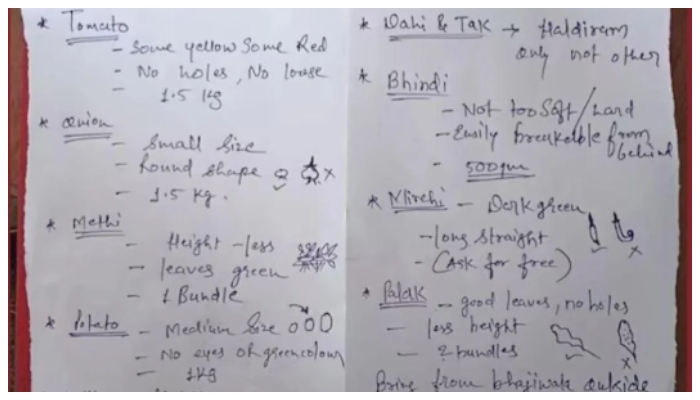 * Tomato
- Some yellow Some Red
- No holes, No loose
- 1.5 Kg
* Onion
- Small Size
- Round shape
- 1.5 Kg.
* Methi
- Height - less
- leaves green
- 1 Bundle
* Potato - Medium Size
- No eyes or green colour
- 1 Kg
* Dahi & Tak → Haldiram
only not other
* Bhindi
- Not too Soft / hard
- Easily breakable from behind
- 500gm
* Mirchi - Dark green
- long straight
- (Ask for free)
* Palak - good leaves, no holes
- less height
- 2 bundles
Bring from bhajiwala outside